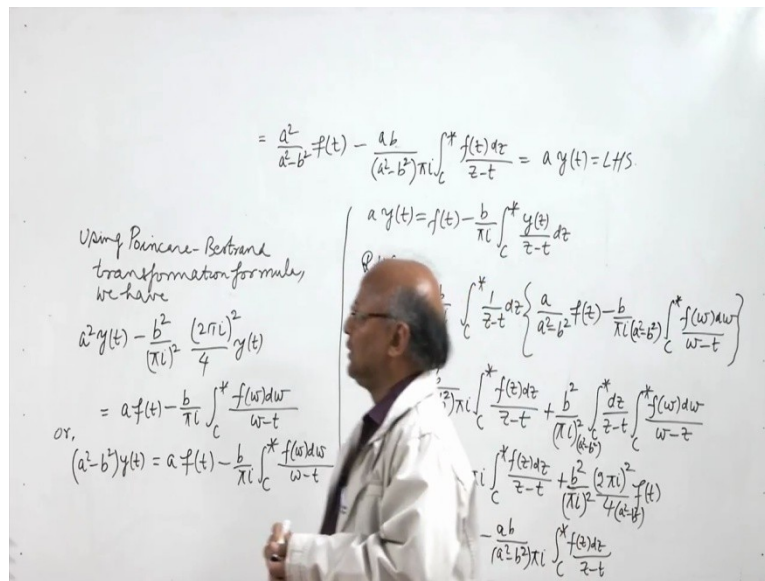 = a²/(a²-b²) f(t) - ab/((a²-b²)πi) ∫_C^* f(z)dz/(z-t) = a y(t) = LHS.
Using Poincare-Bertrand
transformation formula,
we have
a² y(t) - b²/(πi)² (2πi)²/4 y(t)
= a f(t) - b/πi ∫_C^* f(w)dw/(w-t)
or,
(a²-b²) y(t) = a f(t) - b/πi ∫_C^* f(w)dw/(w-t)
a y(t) = f(t) - b/πi ∫_C^* y(z)/(z-t) dz
∫_C^* 1/(z-t) dz { a/(a²-b²) f(z) - b/(πi(a²-b²)) ∫_C^* f(w)dw/(w-t) }
πi ∫_C^* f(z)dz/(z-t) + b²/((πi)²(a²-b²)) ∫_C^* dz/(z-t) ∫_C^* f(w)dw/(w-z)
πi ∫_C^* f(z)dz/(z-t) + b²/(πi)² (2πi)²/(4(a²-b²)) f(t)
- ab/((a²-b²)πi) ∫_C^* f(z)dz/(z-t)